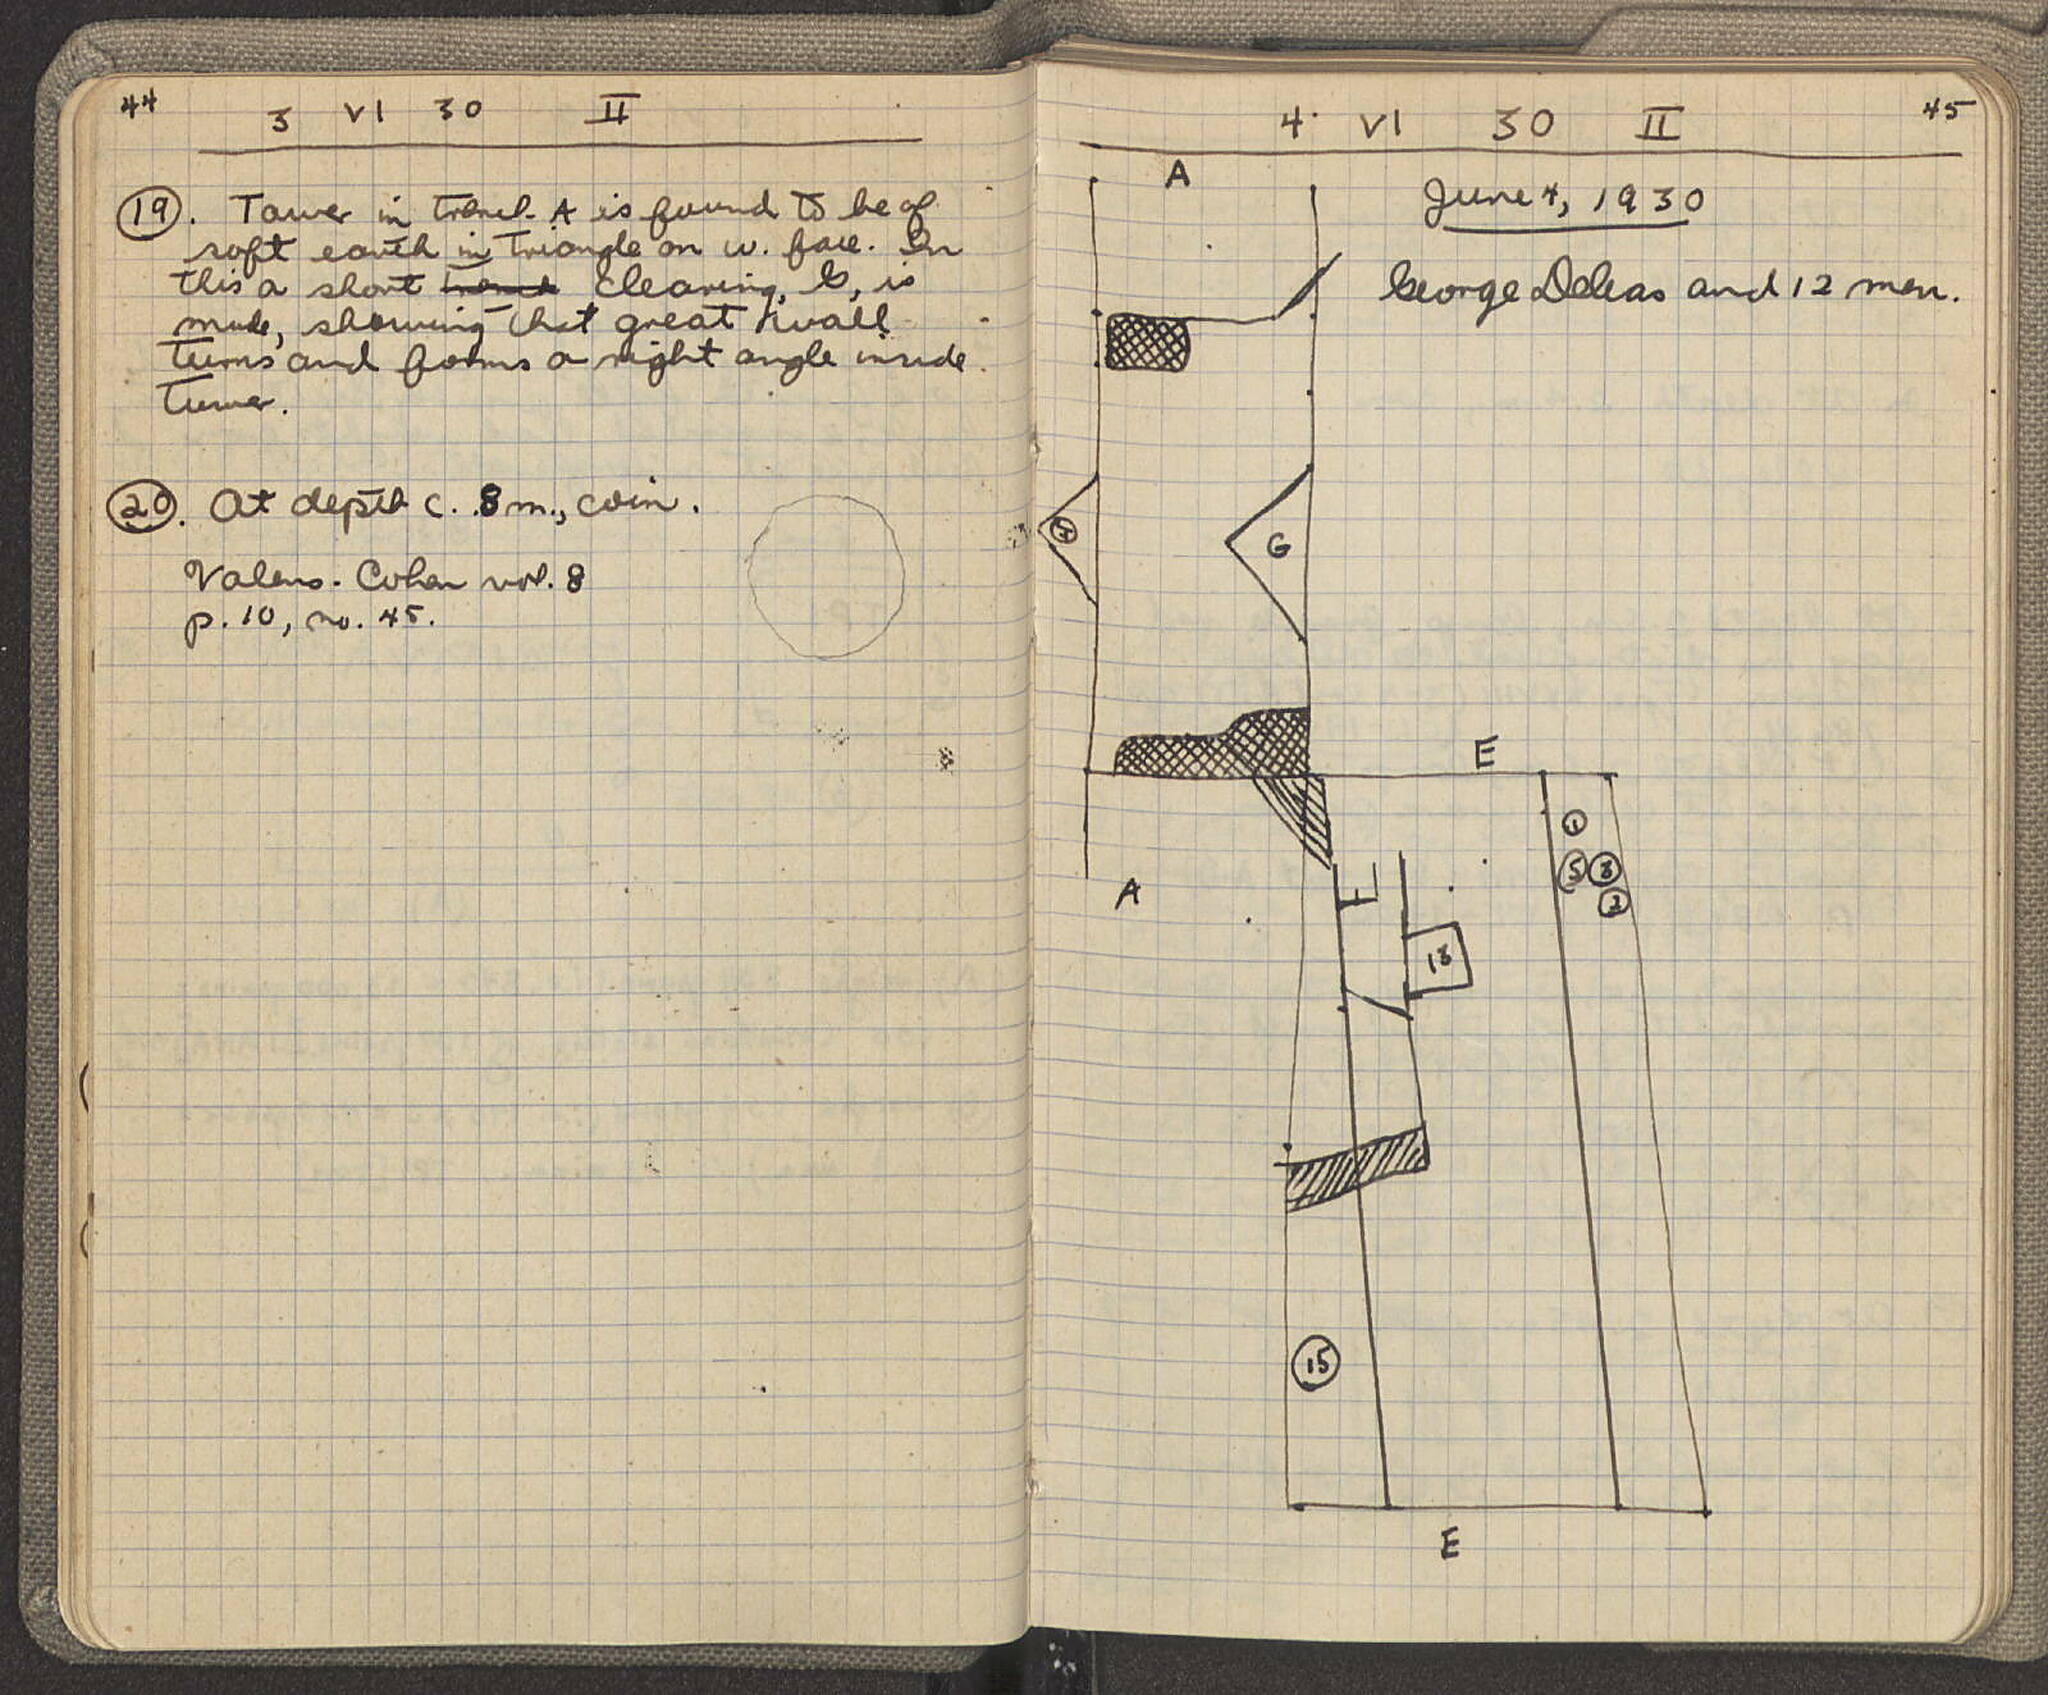 44
3 VI 30 II
19. Tower in trench A is found to be of
soft earth in triangle on w. face. In
this a short trench clearing, G, is
made, showing that great wall
turns and forms a right angle inside
Tower.
20. At depth c. .8 m., coin.
Valens. Cohen vol. 8
p. 10, no. 45.
45
4 VI 30 II
A
June 4, 1930
George Deleas and 12 men.
G
E
1
5 3
2
F
A
18
15
E